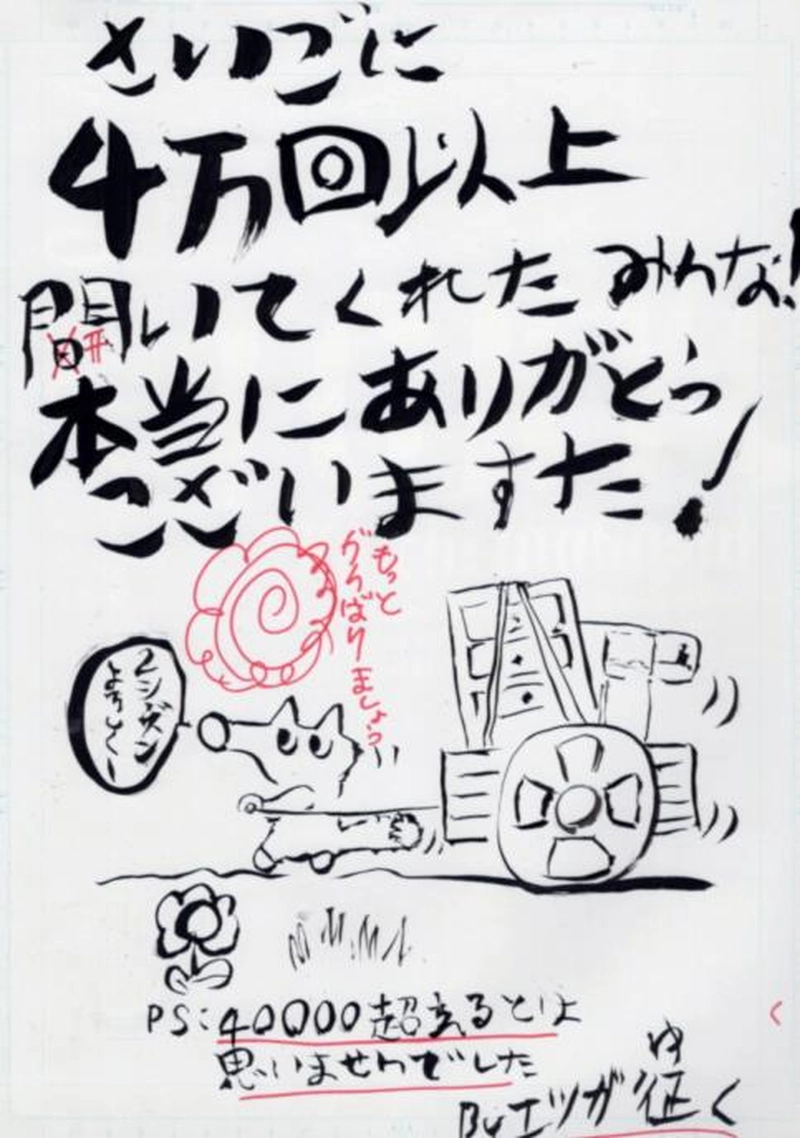 さいごに
4万回以上
間いてくれたみんな!
开
本当にありがとう
ございますた!
もっと
がんばりましょう
2シーズン
よろしくー
PS:40000超えるとは
思いませんでした
ゆ
Byエツが征く